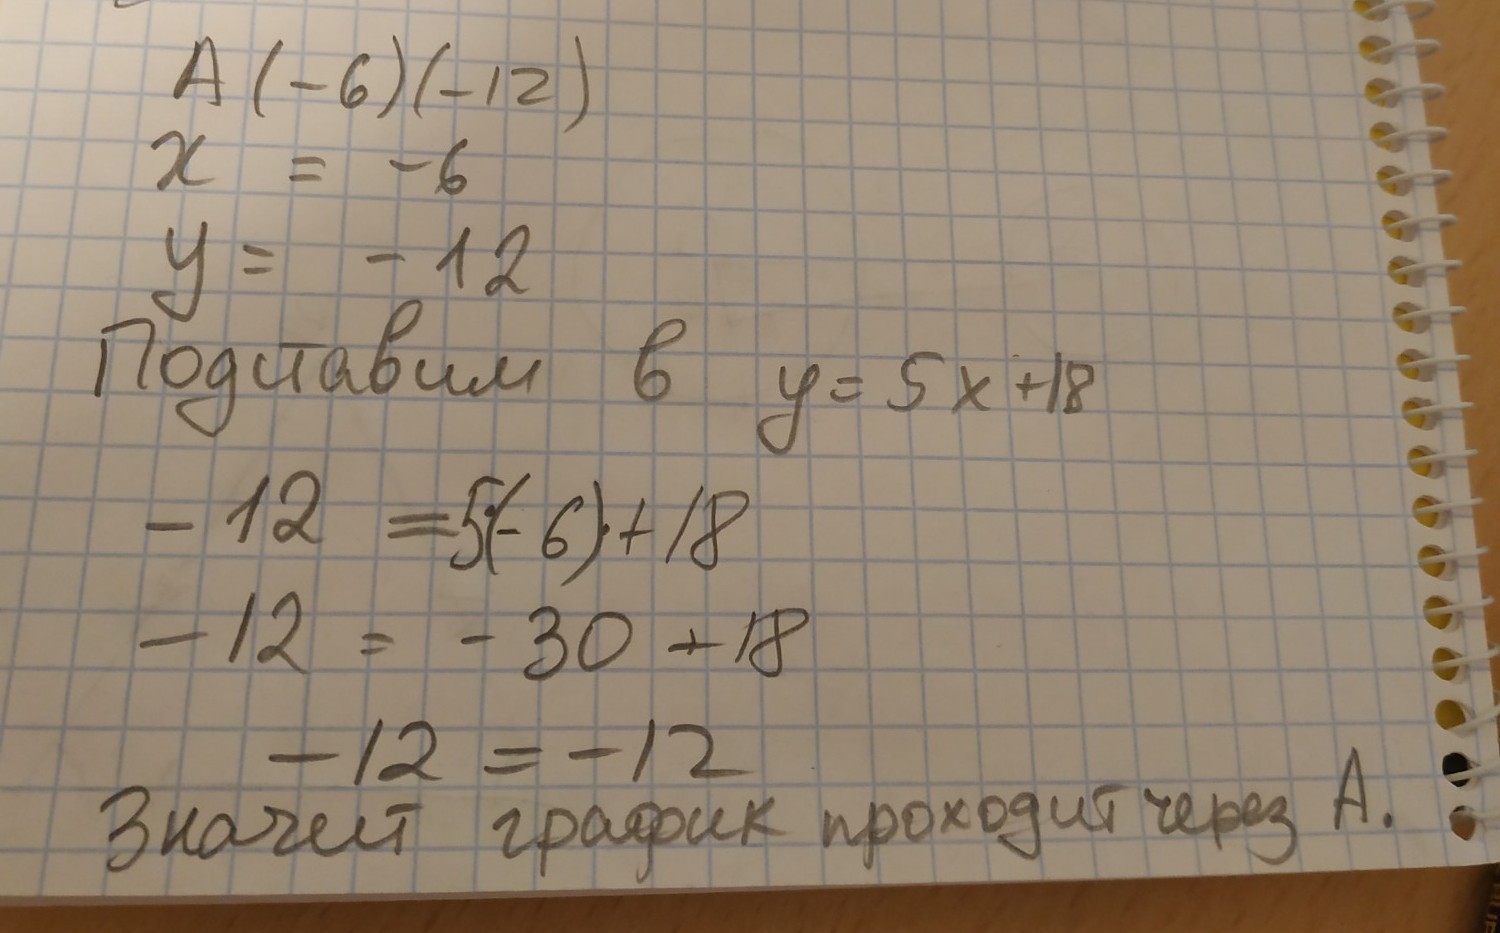 A(-6)(-12)
x = -6
y = -12
Подставим в y = 5x+18
-12 = 5(-6)+18
-12 = -30 +18
-12 = -12
Значит график проходит через А.